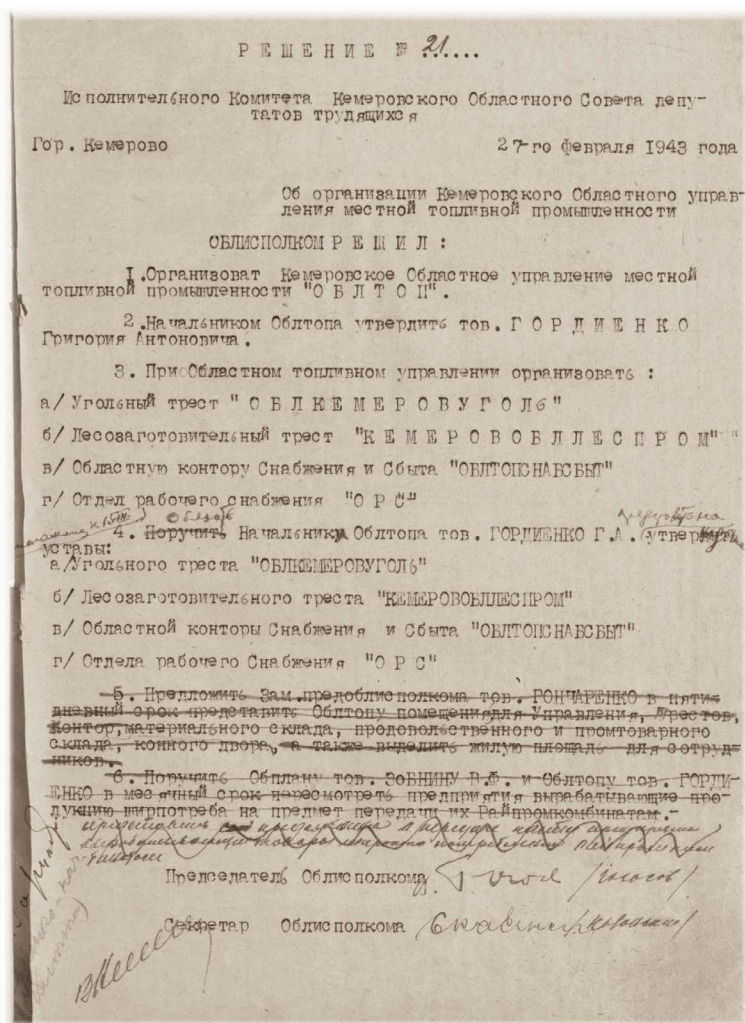 РЕШЕНИЕ № 21.....
Исполнительного Комитета Кемеровского Областного Совета депу-
татов трудящихся
Гор. Кемерово 27-го февраля 1943 года
Об организации Кемеровского Областного управ-
ления местной топливной промышленности
ОБЛИСПОЛКОМ РЕШИЛ:
1. Организоват Кемеровское Областное управление местной
топливной промышленности "ОБЛТОП".
2. Начальником Облтопа утвердить тов. ГОРДИЕНКО
Григория Антоновича.
3. При Областном топливном управлении организовать:
а/ Угольный трест "ОБЛКЕМЕРОВУГОЛЬ"
б/ Лесозаготовительный трест "КЕМЕРОВОБЛЛЕСПРОМ"
в/ Областную контору Снабжения и Сбыта "ОБЛТОПСНАБСБЫТ"
г/ Отдел рабочего снабжения "ОРС"
4. Поручить Начальнику Облтопа тов. ГОРДИЕНКО Г.А.
уставы:
а/Угольного треста "ОБЛКЕМЕРОВУГОЛЬ"
б/ Лесозаготовительного треста "КЕМЕРОВОБЛЛЕСПРОМ"
в/ Областной конторы Снабжения и Сбыта "ОБЛТОПСНАБСБЫТ"
г/ Отдела рабочего Снабжения "ОРС"
5. Предложить Зам.предоблисполкома тов. ГОНЧАРЕНКО в пяти-
дневный срок представить Облтопу помещениядля Управления, Трестов,
Контор,материального склада, продовольственного и промтоварного
склада, конного двора, а также выделить жилую площадь для сотруд-
ников.
6. Поручить Обплану тов. ЗОБНИНУ В.Ф. и Облтопу тов. ГОРДИ-
ЕНКО в месячный срок пересмотреть предприятия вырабатывающие про-
дукцию ширпотреба на предмет передачи их Райпромкомбинатам.-
Председатель Облисполкома
Секретар Облисполкома